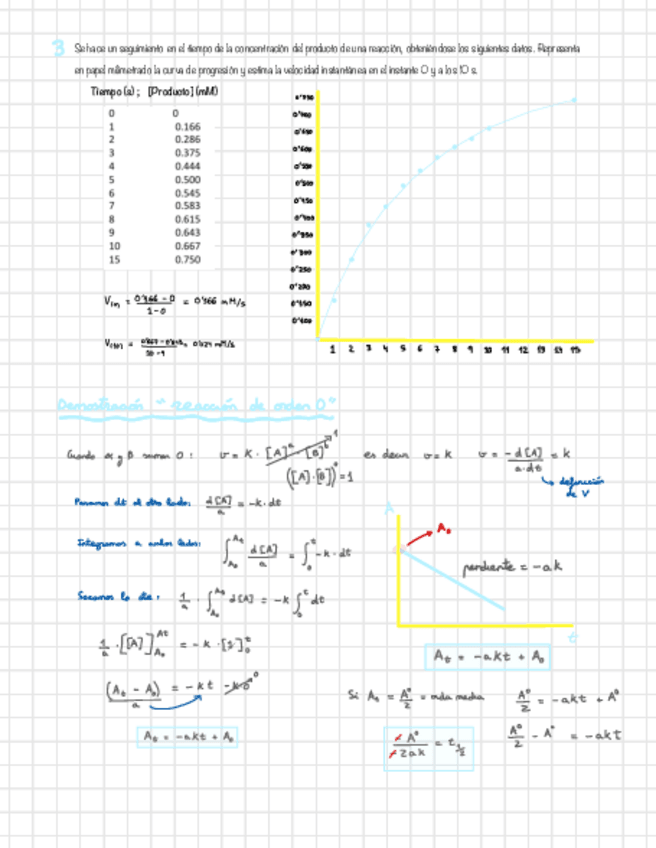 3 Se hace un seguimiento en el tiempo de la concentración del producto de una reacción, obteniéndose los siguientes datos. Representa
en papel milimetrado la curva de progresión y estima la velocidad instantánea en el instante 0 y a los 10 s.
Tiempo (s); [Producto] (mM)
0 0
1 0.166
2 0.286
3 0.375
4 0.444
5 0.500
6 0.545
7 0.583
8 0.615
9 0.643
10 0.667
15 0.750
0'650
0'600
0'500
0'450
0'400
0'350
0'300
0'250
0'200
0'150
0'100
1 2 3 4 5 6 7 8 9 10 11 12 13 14 15
= 0'166 - 0 / 1 - 0 = 0'166 mM/s
Demostración "reacción de orden 0"
Cuando α y β suman 0: v = k · [A]^α · [B]^β 1 es decir v = k v = -d[A] / a·dt = k
([A]·[B])^0 = 1
definición de V
Pasamos dt al otro lado: d[A] / a = -k·dt
Integramos a ambos lados: ∫ d[A] / a = ∫ -k·dt
A
A₀
pendiente = -ak
t
Sacamos lo cte: 1/a · ∫ d[A] = -k ∫ dt
1/a · [[A]] = -k · [t]
(At - A₀) / a = -kt - k·0 0
At = -akt + A₀
At = -akt + A₀
Si At = A°/2 = vida media A°/2 = -akt + A°
A°/2 - A° = -akt
A° / 2ak = t½